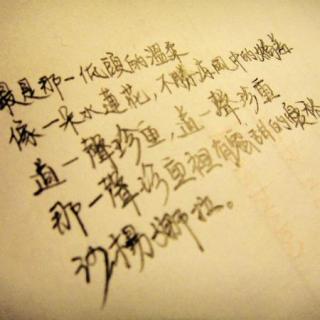 最是那一低頭的溫柔
像一朵水蓮花，不勝涼風中的嬌羞
道一聲珍重，道一聲珍重
那一聲珍重裡有蜜甜的憂愁
沙揚娜拉。